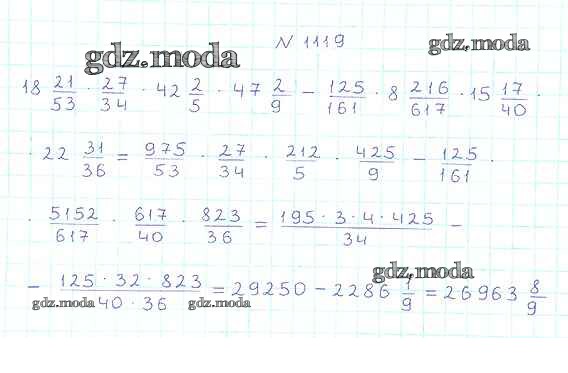 N 1119
gdz.moda
gdz.moda
18 21/53 · 27/34 · 42 2/5 · 47 2/9 − 125/161 · 8 216/617 · 15 17/40 ·
· 22 31/36 = 975/53 · 27/34 · 212/5 · 425/9 − 125/161 ·
· 5152/617 · 617/40 · 823/36 = 195·3·4·425/34 −
gdz.moda
− 125·32·823/40·36 = 29250 − 2286 1/9 = 26963 8/9
gdz.moda
gdz.moda